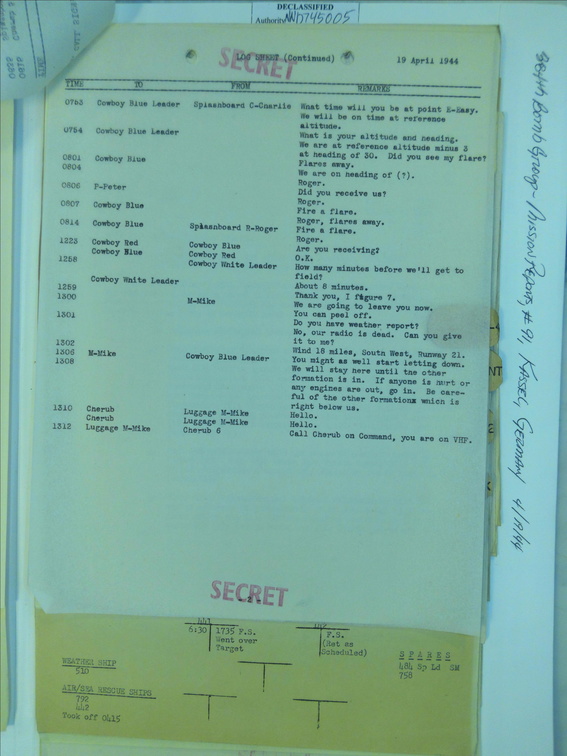 DECLASSIFIED
Authority NND745005
SECRET
LOG SHEET (Continued)
19 April 1944
TIME TO FROM REMARKS
0753 Cowboy Blue Leader Splasnboard C-Cnarlie What time will you be at point E-Easy.
We will be on time at reference
altitude.
0754 Cowboy Blue Leader What is your altitude and neading.
We are at reference altitude minus 3
at neading of 30. Did you see my flare?
0801 Cowboy Blue Flares away.
0804 We are on neading of (?).
Roger.
0806 P-Peter Did you receive us?
Roger.
0807 Cowboy Blue Fire a flare.
Roger, flares away.
0814 Cowboy Blue Splasnboard R-Roger Fire a flare.
Roger.
1223 Cowboy Red Cowboy Blue Are you receiving?
Cowboy Blue Cowboy Red O.K.
1258 Cowboy White Leader How many minutes before we'll get to
field?
Cowboy White Leader
1259 About 8 minutes.
1300 Thank you, I figure 7.
M-Mike We are going to leave you now.
1301 You can peel off.
Do you have weather report?
No, our radio is dead. Can you give
1302 it to me?
1306 Wind 18 miles, South West, Runway 21.
1308 M-Mike Cowboy Blue Leader You mignt as well start letting down.
We will stay here until the other
formation is in. If anyone is nurt or
any engines are out, go in. Be care-
ful of the other formations wnich is
right below us.
1310 Cherub Luggage M-Mike Hello.
Cherub Luggage M-Mike Hello.
1312 Luggage M-Mike Cherub 6 Call Cherub on Command, you are on VHF.
SECRET
- 2 -
441
6:30 1735 F.S.
Went over
Target
F.S.
(Ret as
Scheduled)
S P A R E S
484 Sp Ld SM
758
WEATHER SHIP
510
AIR/SEA RESCUE SHIPS
792
442
Took off 0415
384th Bomb Group - Mission Reports # 91, KASSEL, GERMANY 4/19/44
TIME